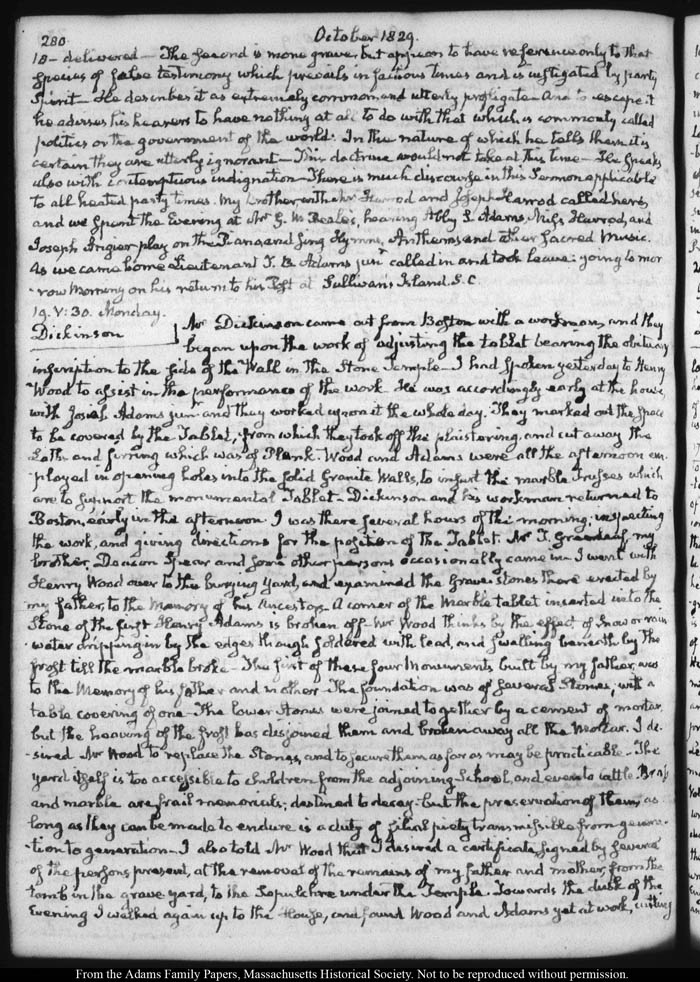 280.
October 1829.
10 - delivered - The second is more grave, but appears to have reference only to that
species of false testimony which prevails in factious times and is instigated by party
Spirit - He describes it as extremely common, and utterly profligate. And to escape it
he advises his hearers to have nothing at all to do with that which is commonly called
politics or the government of the world. In the nature of which he tells them it is
certain they are utterly ignorant - This doctrine would not take at this time - He speaks
also with contemptuous indignation - There is much discourse in this Sermon applicable
to all heated party times. My brother, with Mr Harrod and Joseph Harrod called here,
and we spent the Evening at Mr G. W. Beale's, hearing Abby S. Adams, Miss Harrod, and
Joseph Angier play on the Piano and sing Hymns, Anthems and other sacred Music.
As we came home Lieutenant T. B. Adams junr called in and took leave: going tomor
-row Morning on his return to his Post at Sullivan's Island. S.C.
19. V: 30. Monday.
Dickinson
Mr Dickinson came out from Boston with a workman, and they
began upon the work of adjusting the tablet bearing the obituary
inscription to the side of the Wall in the Stone Temple - I had spoken yesterday to Henry
Wood to assist in the performance of the work. He was accordingly early at the house,
with Josiah Adams junr and they worked upon it the whole day. They marked out the space
to be covered by the Tablet, from which they took off the plaistering, and cut away the
Laths and furring which was of Plank. Wood and Adams were all the afternoon em
-ployed in opening holes into the solid Granite Walls, to insert the marble trusses which
are to support the monumental Tablet - Dickinson and his workman returned to
Boston, early in the afternoon. I was there several hours of the morning; inspecting
the work, and giving directions for the position of the Tablet. Mr T. Greenleaf, my
brother, Deacon Spear and some other persons occasionally came in. I went with
Henry Wood over to the burying yard, and examined the Grave stones there erected by
my father, to the Memory of his Ancestors. A corner of the Marble tablet inserted into the
Stone of the first Henry Adams is broken off. Mr Wood thinks by the effect of Snow or rain
water dripping in by the edges though soldered with lead, and swelling beneath by the
frost till the marble broke - The first of these four Monuments built by my father, was
to the Memory of his father and mother - The foundation was of several Stones, with a
table covering of one - The lower Stones were joined together by a cement of mortar,
but the heaving of the frost has disjoined them and broken away all the Mortar. I de-
sired Mr Wood to replace the Stones, and to secure them as far as may be practicable - The
yard itself is too accessible to children from the adjoining School, and even to cattle. Brass
and marble are frail memorials; destined to decay; but the preservation of them, as
long as they can be made to endure is a duty of filial piety transmissible from genera-
tion to generation - I also told Mr Wood that I desired a certificate signed by several
of the persons present, at the removal of the remains of my father and mother, from the
tomb in the grave yard, to the Sepulchre under the Temple. Towards the dusk of the
Evening I walked again up to the House, and found Wood and Adams yet at work, cutting
From the Adams Family Papers, Massachusetts Historical Society. Not to be reproduced without permission.